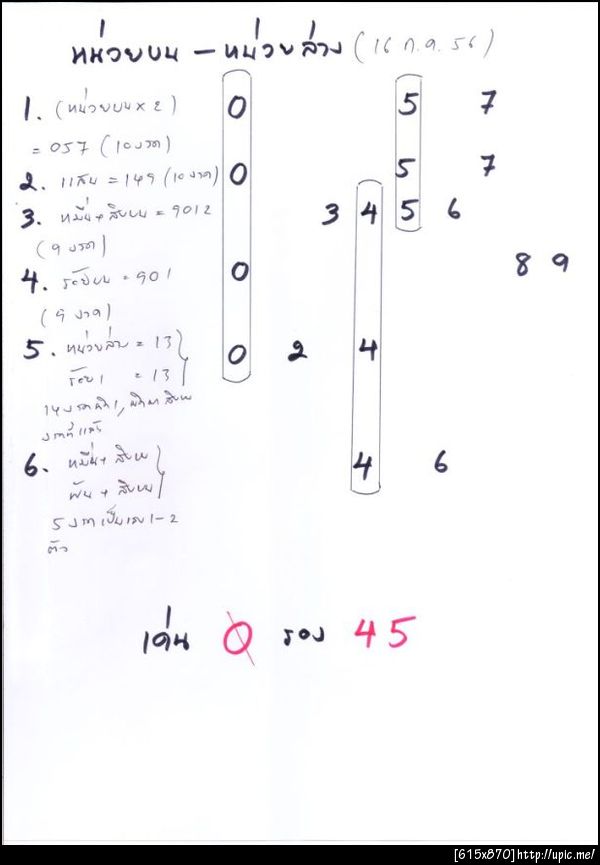 หน่วยบน - หน่วยล่าง (16 ก.ค. 56)
1. (หน่วยบน x 2) 0 5 7
= 057 (10 งวด)
2. แสน = 149 (10 งวด) 0 5 7
3. หมื่น + สิบบน = 9012 0 3 4 5 6
(9 งวด)
8 9
4. ร้อยบน = 901 0
(9 งวด)
5. หน่วยล่าง = 13 0 2 4
ร้อย 1 = 13
14 งวด
6. หมื่น + สิบบน 4 6
พัน + สิบบน
5 งวด เป็นเลข 1-2
ตัว
เด่น 0 รอง 45
[615x870]http://upic.me/